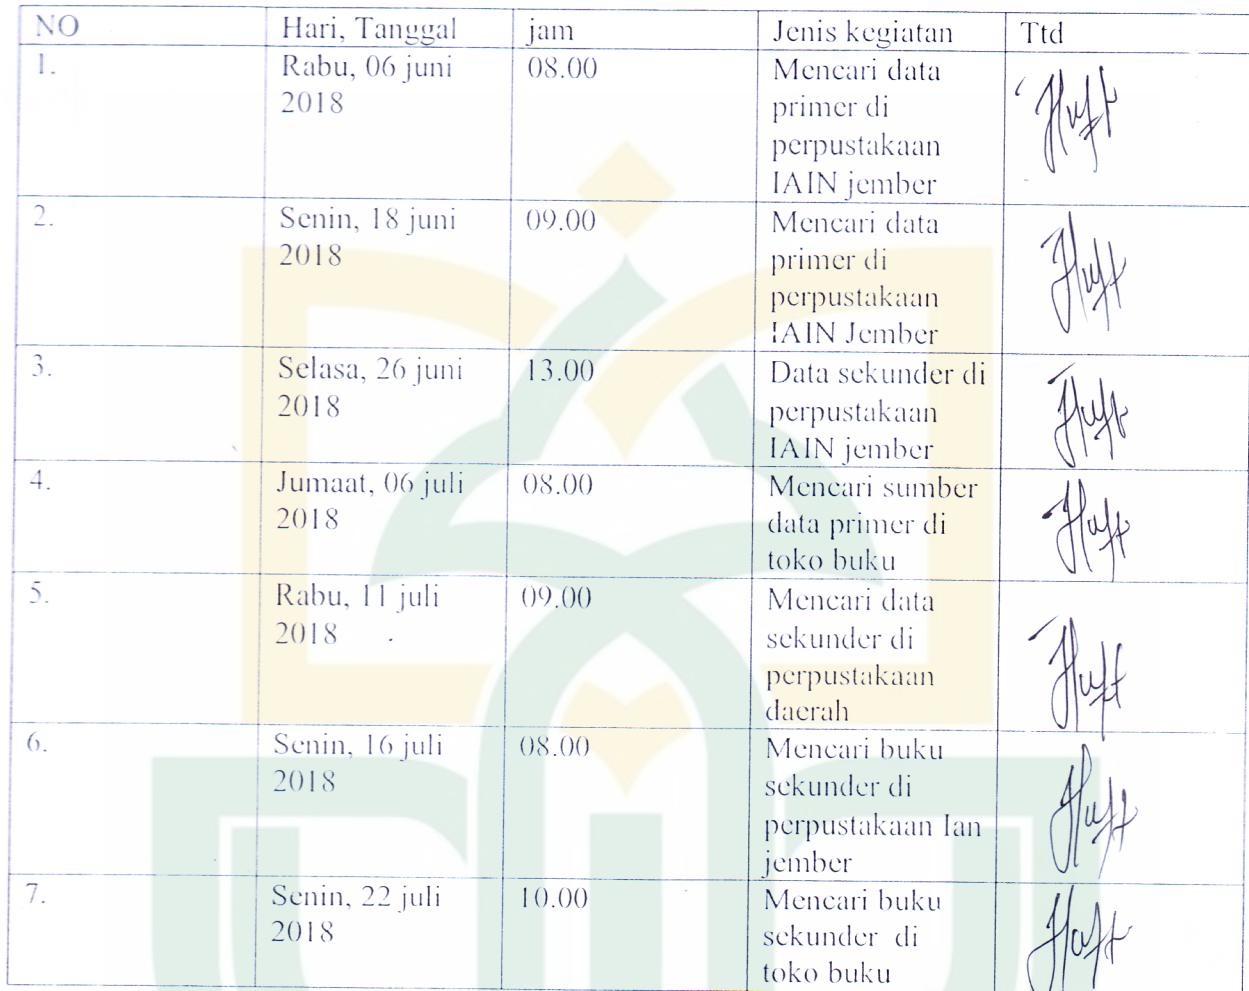 NO Hari, Tanggal jam Jenis kegiatan Ttd
1. Rabu, 06 juni 08.00 Mencari data
2018 primer di
perpustakaan
IAIN jember
2. Senin, 18 juni 09.00 Mencari data
2018 primer di
perpustakaan
IAIN Jember
3. Selasa, 26 juni 13.00 Data sekunder di
2018 perpustakaan
IAIN jember
4. Jumaat, 06 juli 08.00 Mencari sumber
2018 data primer di
toko buku
5. Rabu, 11 juli 09.00 Mencari data
2018 sekunder di
perpustakaan
daerah
6. Senin, 16 juli 08.00 Mencari buku
2018 sekunder di
perpustakaan Ian
jember
7. Senin, 22 juli 10.00 Mencari buku
2018 sekunder di
toko buku